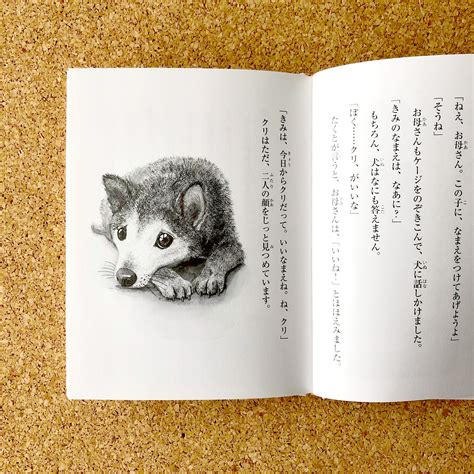 「ねえ、お母さん。この子に、なまえをつけてあげようよ」
「そうね」
お母さんもケージをのぞきこんで、犬に話しかけました。
「きみのなまえは、なあに?」
もちろん、犬はなにも答えません。
「ぼく……クリ、がいいな」
たくとが言うと、お母さんは、「いいね!」とほほえみました。
「きみは、今日からクリだって。いいなまえね。ね、クリ」
クリはただ、二人の顔をじっと見つめています。